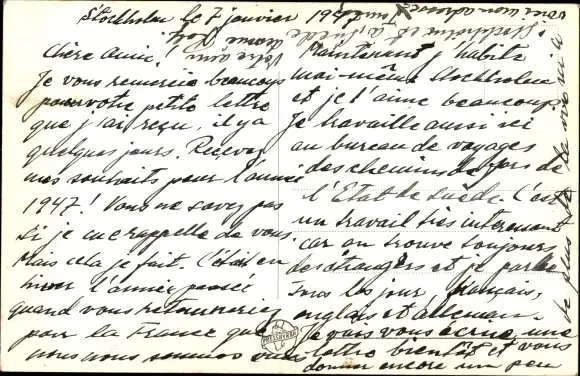 Stockholm le 7 janvier 1947
Chère Amie!
Je vous remercie beaucoup
pour votre petite lettre
que j'ai reçu, il y a
quelques jours. Recevez
mes souhaits pour l'année
1947! Vous ne savez pas
si je me rappelle de vous
Mais cela je fait. C'était en
hiver l'année passée
quand vous retourneriez
pour la France que
nous nous sommes vues
Maintenant j'habite
moi-même Stockholm
et je l'aime beaucoup.
Je travaille aussi ici
au bureau de voyages
des chemins de fers de
l'Etat de Suède. C'est
un travail très interessant
car on trouve toujours
des étrangers et je parle
tous les jour, français,
anglais et allemand.
Je vais vous écrire une
lettre bientôt et vous
donner encore un peu
de plus de
Votre amie
voici mon adresse
Stockholm et Suède
PRESSBYRÅN